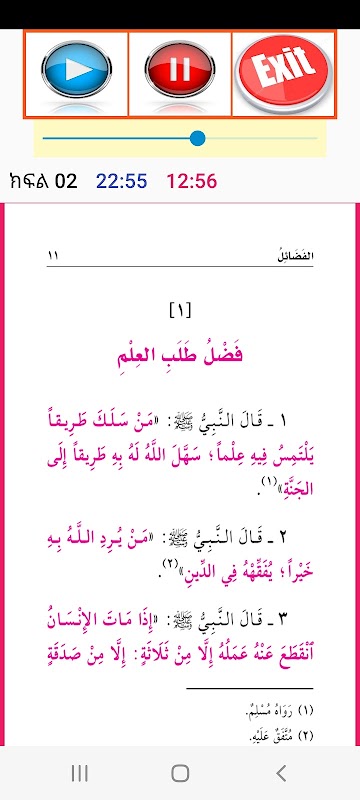 Exit
ክፍል 02 22:55 12:56
الفَضَائِلُ ١١
[١]
فَضْلُ طَلَبِ العِلْمِ
١ ـ قَالَ النَّبِيُّ ﷺ: «مَنْ سَلَكَ طَرِيقاً
يَلْتَمِسُ فِيهِ عِلْماً؛ سَهَّلَ اللَّهُ لَهُ بِهِ طَرِيقاً إِلَى
الجَنَّةِ»(١).
٢ ـ قَالَ النَّبِيُّ ﷺ: «مَنْ يُرِدِ اللَّهُ بِهِ
خَيْراً؛ يُفَقِّهْهُ فِي الدِّينِ»(٢).
٣ ـ قَالَ النَّبِيُّ ﷺ: «إِذَا مَاتَ الإِنْسَانُ
ٱنْقَطَعَ عَنْهُ عَمَلُهُ إِلَّا مِنْ ثَلَاثَةٍ: إِلَّا مِنْ صَدَقَةٍ
(١) رَوَاهُ مُسْلِمٌ.
(٢) مُتَّفَقٌ عَلَيْهِ.